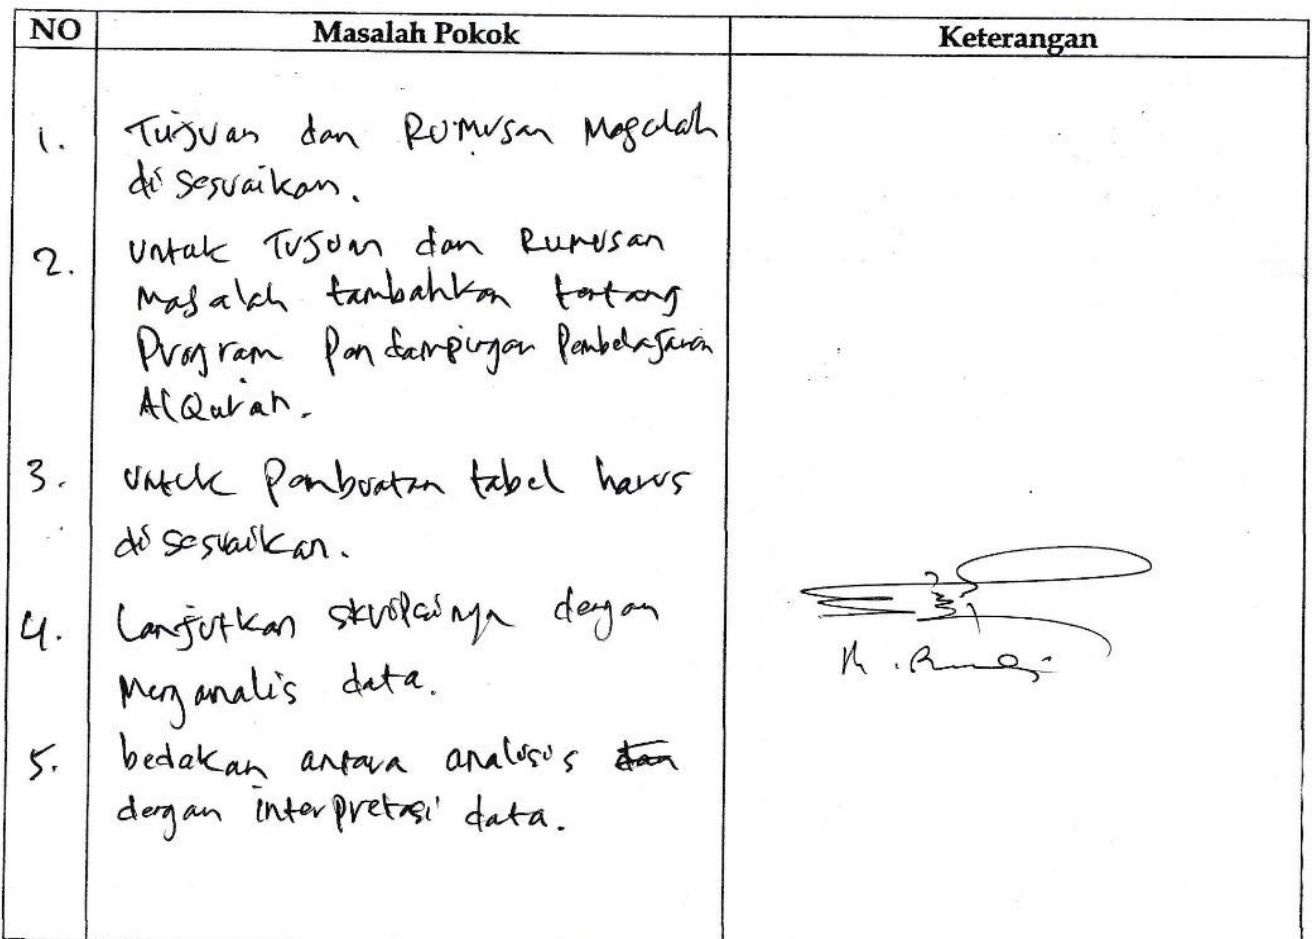 NO Masalah Pokok Keterangan
1. Tujuan dan Rumusan Masalah
di sesuaikan.
2. Untuk Tujuan dan Rumusan
Masalah tambahkan tentang
Program Pendampingan Pembelajaran
AlQuran.
3. Untuk Pembuatan tabel harus
di sesuaikan.
4. Lanjutkan skripsinya dengan
Menganalis data.
5. bedakan antara analisis dan
dengan interpretasi data.